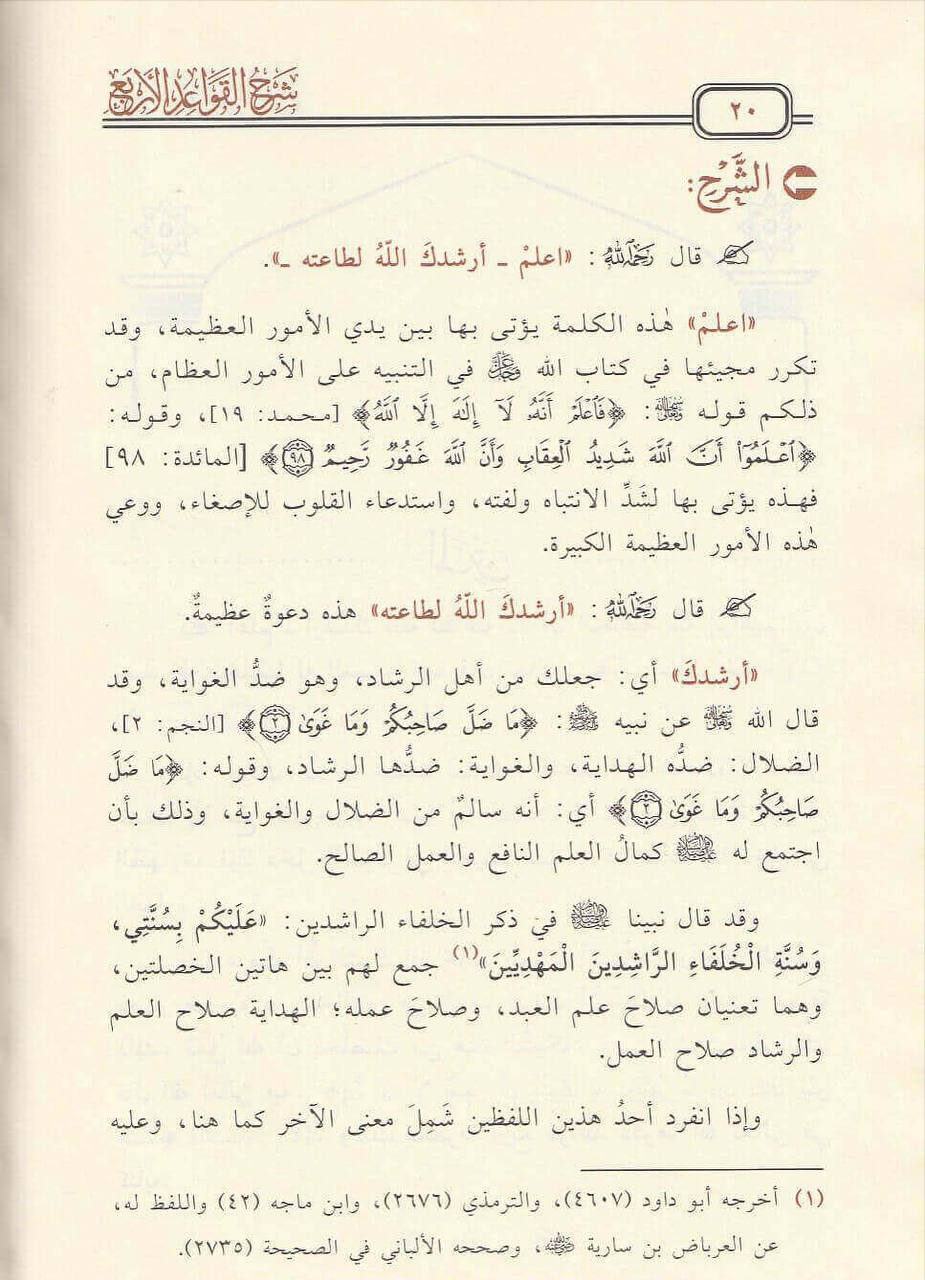 شرح القواعد الأربع
٢٠
الشَّرْح:
قال رَحِمَهُ اللَّهُ: «اعلمْ ـ أرشدكَ اللهُ لطاعته ـ».
«اعلمْ» هٰذه الكلمة يؤتى بها بين يدي الأمور العظيمة، وقد
تكرر مجيئها في كتاب الله عَزَّوَجَلَّ في التنبيه على الأمور العظام، من
ذلكم قوله سُبْحَانَهُ وَتَعَالَى: ﴿فَٱعْلَمْ أَنَّهُۥ لَآ إِلَٰهَ إِلَّا ٱللَّهُ﴾ [محمد: ١٩]، وقوله:
﴿ٱعْلَمُوٓا۟ أَنَّ ٱللَّهَ شَدِيدُ ٱلْعِقَابِ وَأَنَّ ٱللَّهَ غَفُورٌ رَّحِيمٌ ٩٨﴾ [المائدة: ٩٨]
فهذه يؤتى بها لشَدِّ الانتباه ولفته، واستدعاء القلوب للإصغاء، ووعي
هٰذه الأمور العظيمة الكبيرة.
قال رَحِمَهُ اللَّهُ: «أرشدكَ اللهُ لطاعته» هذه دعوةٌ عظيمةٌ.
«أرشدكَ» أي: جعلك من أهل الرشاد، وهو ضدُّ الغواية، وقد
قال الله سُبْحَانَهُ وَتَعَالَى عن نبيه ﷺ: ﴿مَا ضَلَّ صَاحِبُكُمْ وَمَا غَوَىٰ ٢﴾ [النجم: ٢]،
الضلال: ضده الهداية، والغواية: ضدُّها الرشاد، وقوله: ﴿مَا ضَلَّ
صَاحِبُكُمْ وَمَا غَوَىٰ ٢﴾ أي: أنه سالمٌ من الضلال والغواية، وذلك بأن
اجتمع له عَلَيْهِ الصَّلَاةُ وَالسَّلَامُ كمالُ العلم النافع والعمل الصالح.
وقد قال نبينا عَلَيْهِ الصَّلَاةُ وَالسَّلَامُ في ذكر الخلفاء الراشدين: «عَلَيْكُمْ بِسُنَّتِي،
وَسُنَّةِ الْخُلَفَاءِ الرَّاشِدِينَ الْمَهْدِيِّينَ»(١) جمع لهم بين هاتين الخصلتين،
وهما تعنيان صلاحَ علم العبد، وصلاحَ عمله؛ الهداية صلاح العلم
والرشاد صلاح العمل.
وإذا انفرد أحدُ هذين اللفظين شَمِلَ معنى الآخر كما هنا، وعليه
(١) أخرجه أبو داود (٤٦٠٧)، والترمذي (٢٦٧٦)، وابن ماجه (٤٢) واللفظ له،
عن العرباض بن سارية رَضِيَ اللَّهُ عَنْهُ، وصححه الألباني في الصحيحة (٢٧٣٥).